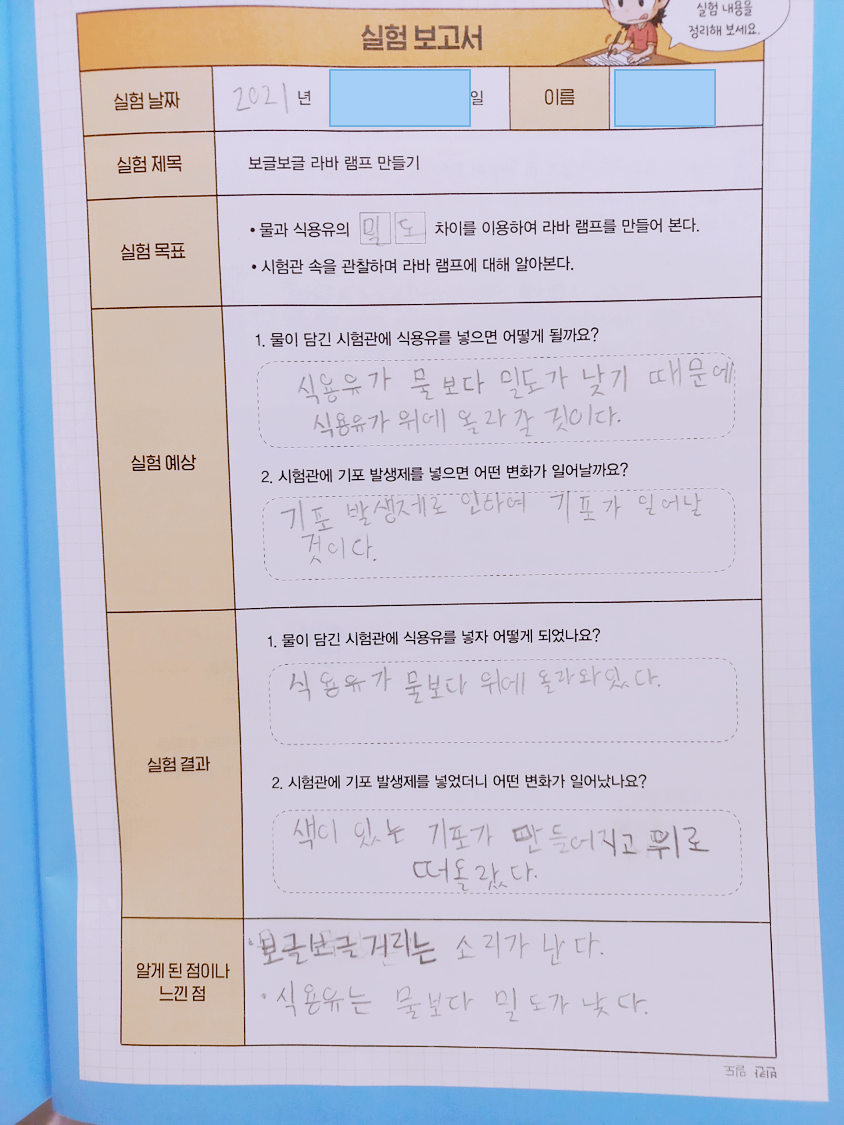 실험 내용을
정리해 보세요.
실험 보고서
실험 날짜 2021년 일 이름
실험 제목 보글보글 라바 램프 만들기
실험 목표
• 물과 식용유의 밀도 차이를 이용하여 라바 램프를 만들어 본다.
• 시험관 속을 관찰하며 라바 램프에 대해 알아본다.
실험 예상
1. 물이 담긴 시험관에 식용유를 넣으면 어떻게 될까요?
식용유가 물보다 밀도가 낮기 때문에
식용유가 위에 올라갈 것이다.
2. 시험관에 기포 발생제를 넣으면 어떤 변화가 일어날까요?
기포 발생제로 인하여 기포가 일어날
것이다.
실험 결과
1. 물이 담긴 시험관에 식용유를 넣자 어떻게 되었나요?
식용유가 물보다 위에 올라와있다.
2. 시험관에 기포 발생제를 넣었더니 어떤 변화가 일어났나요?
색이 있는 기포가 만들어지고 위로
떠올랐다.
알게 된 점이나
느낀 점
• 보글보글거리는 소리가 난다.
• 식용유는 물보다 밀도가 낮다.